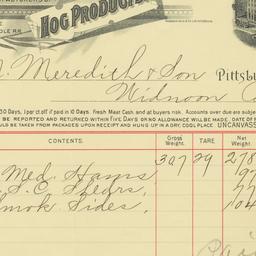 HOG PRODUCTS
Meredith & Son Pittsbu
Widnoon
30 Days, 1 per ct. off if paid in 10 Days. Fresh Meat Cash, and at buyers risk. Accounts over due are subje
BE REPORTED AND RETURNED WITHIN FIVE DAYS OR NO ALLOWANCE WILL BE MADE. DATE OF
ULD BE TAKEN FROM PACKAGES UPON RECEIPT AND HUNG UP IN A DRY, COOL PLACE UNCANVASS
CONTENTS. Gross Weight. TARE Net Weight.
307 29 278
Med. Hams
S. C. Shldrs,
Smok Sides, 104